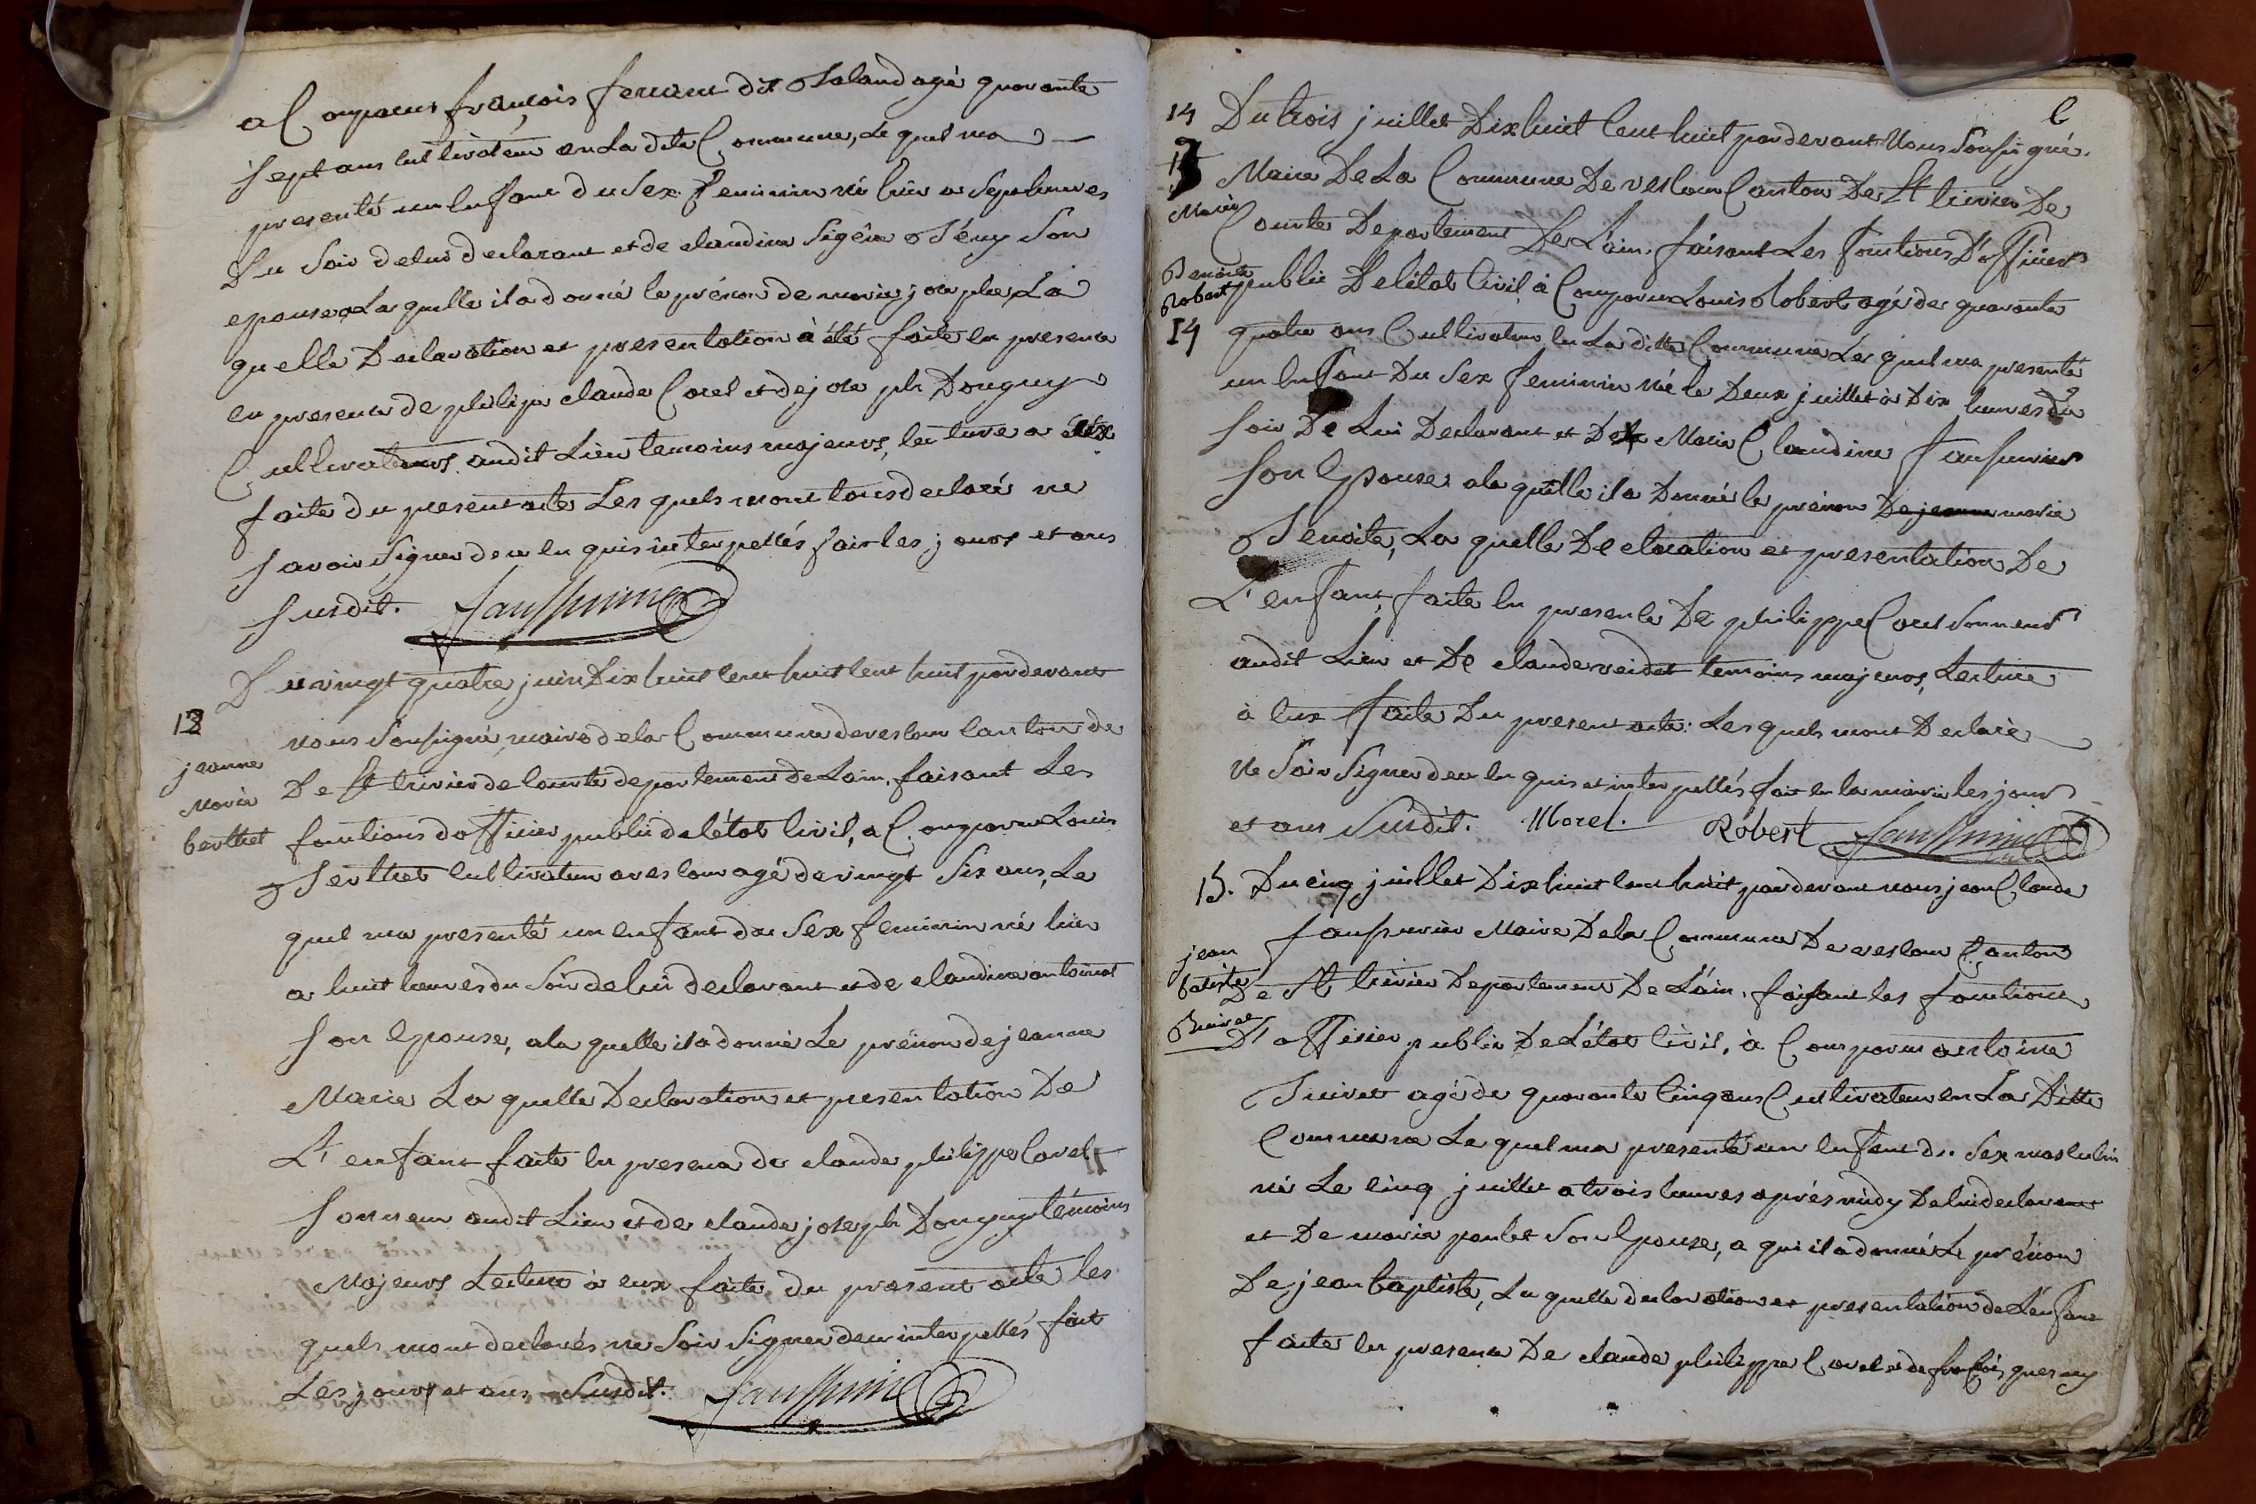 a Comparu françois feriant dit Baland agé quarante
sept ans cultivateur en La dite Commune, Le quel ma
presenté un Enfant du Sex feminin né hier a Sept heures
Du Soir de lui declarant et de claudine
epouse a La quelle il a donné le prénom de marie josephe La
quelle Declaration et presentation à été faite en presence
en presence de philipe claude Corel et de joseph Donguy
Cultivateurs audit Lieu temoins majeurs, lecture a eux
faite du present acte Les quels mont tous declaré ne
Savoir Signer de ce enquis interpellés fait les jours et ans
Susdit.
Du vingt quatre juin Dix huit cent huit cent huit pardevant
13
nous Sousigné maire de la Commune de vescour canton de
jeanne
Marie
berthet
De St trivier de Courte departement de Lain, faisant Les
fonctions dofficier public de létat civil, a Comparu Louis
Berthet cultivateur a vescour agé de vingt Six ans, Le
quel ma presenté un enfant du Sex feminin né hier
a huit heures du Soir de lui declarant et de claudine antoinat
Son Epouse, a la quelle il a donné Le prénom de jeanne
Marie La quelle Declaration et presentation De
L'enfant faite en presence de claude philippe Corel
Sonneur audit Lieu et de claude joseph Donguy témoins
Majeurs Lecture à eux faite du present acte les
quels mont declarés ne Savoir Signer de ce interpellés fait
Les jours et ans Susdit.
6
14 Du trois juillet Dix huit Cent huit par devant Nous Sousigné
Maire De La Commune De vescour Canton De St trivier De
Marie
Courte Departement De Lain, faisant Les fonctions D'officier
Benoite
Robert
public De létat Civil, à Comparu Louis Robert agé de quarante
14
quatre ans Cultivateur en La ditte Commune Le quel ma presenté
un Enfant Du Sex feminin né le Deux juillet à Dix heures du
Soir De Lui Declarant et De Marie Claudine
Son Epouse a la quelle il a Donné le prénom De jeanne marie
Benoite, La quelle Declaration et presentation De
L'enfant, faite en presence De philippe Corel Sonneur
audit Lieu et De claude veidet temoins majeurs, Lecture
à Eux faite Du present acte. Les quels mont Declaré
Ne Savoir Signer de ce enquis et interpellés fait en la mairie les jour
et ans Susdit. Morel. Robert
15. Du cinq juillet Dix huit cent huit pardevant nous jean Claude
Maire De la Commune De vescour Canton
jean
batiste
De St trivier Departement De L'ain, faisant les fonctions
D'officier public De L'état Civil, à Comparu antoine
agé de quarante Cinq ans Cultivateur en La Ditte
Commune Le quel ma presenté un Enfant du Sex masculin
né Le cinq juillet a trois heures aprés midy De lui declarant
et De marie poulet Son Epouse, a qui il a donné Le prénom
De jean baptiste, La quelle declaration et presentation de L'enfant
faite en presence De claude philippe Corel et de françois